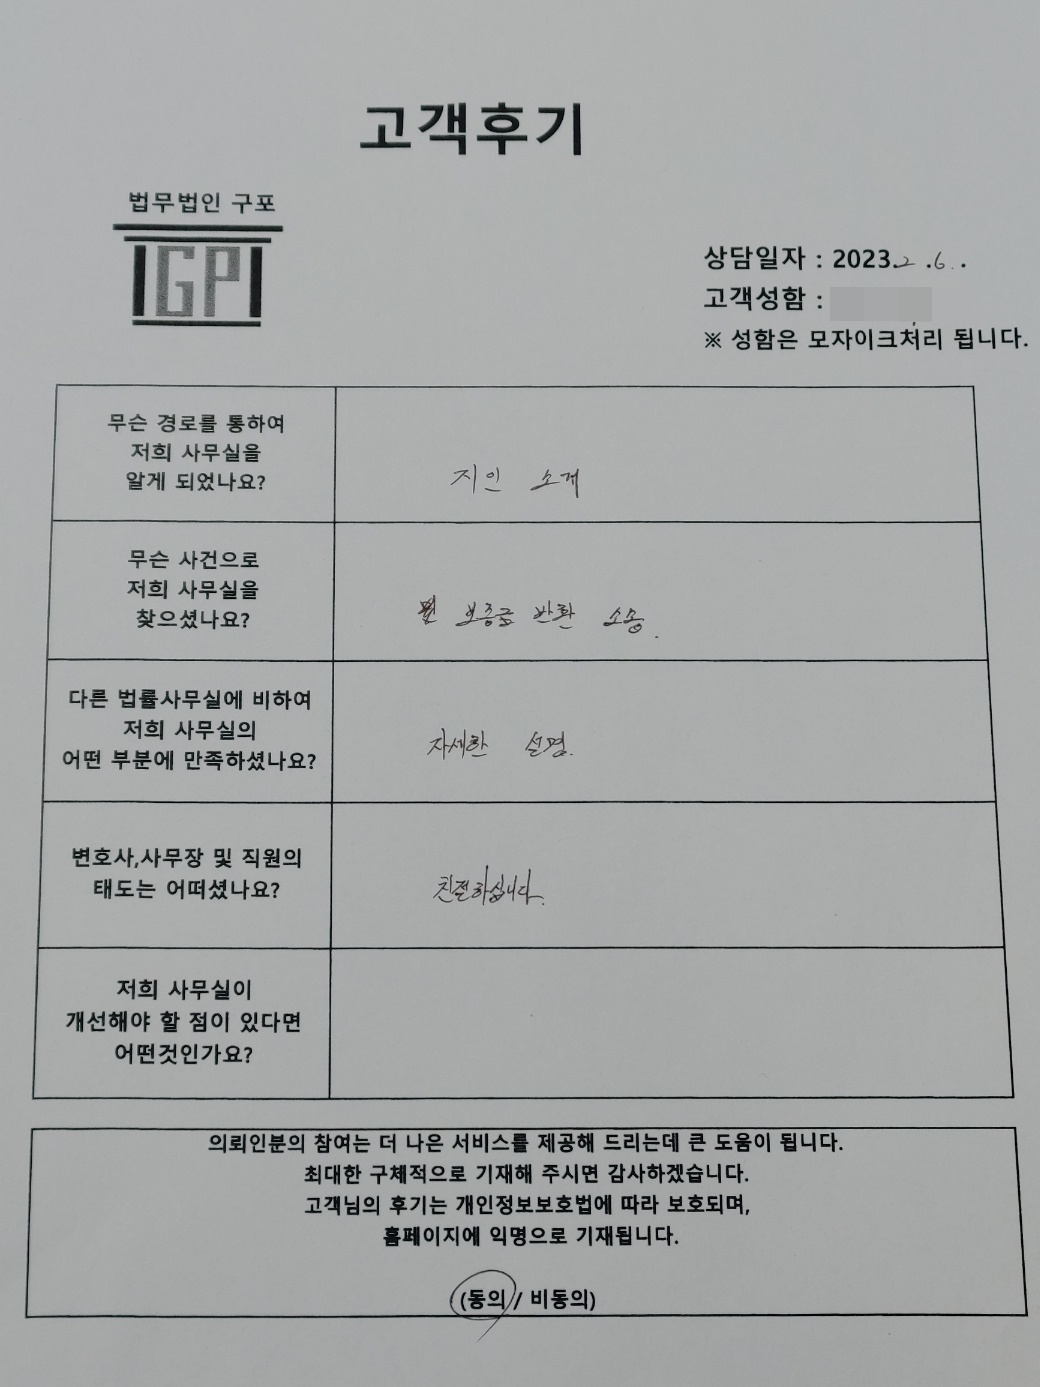 고객후기
법무법인 구포
GP
상담일자 : 2023.2.6..
고객성함 :
※ 성함은 모자이크처리 됩니다.
무슨 경로를 통하여
저희 사무실을
알게 되었나요?
지인 소개
무슨 사건으로
저희 사무실을
찾으셨나요?
보증금 반환 소송.
다른 법률사무실에 비하여
저희 사무실의
어떤 부분에 만족하셨나요?
자세한 설명.
변호사,사무장 및 직원의
태도는 어떠셨나요?
친절하십니다.
저희 사무실이
개선해야 할 점이 있다면
어떤것인가요?
의뢰인분의 참여는 더 나은 서비스를 제공해 드리는데 큰 도움이 됩니다.
최대한 구체적으로 기재해 주시면 감사하겠습니다.
고객님의 후기는 개인정보보호법에 따라 보호되며,
홈페이지에 익명으로 기재됩니다.
(동의 / 비동의)